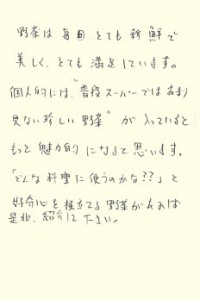 野菜は毎回とても新鮮で
美しく、とても満足しています。
個人的には、"普段スーパーではあまり
見ない珍しい野菜"が入っていると
もっと魅力的になると思います。
「どんな料理に使うのかな??」と
好奇心を掻き立てる野菜があれば
是非、紹介して下さい。